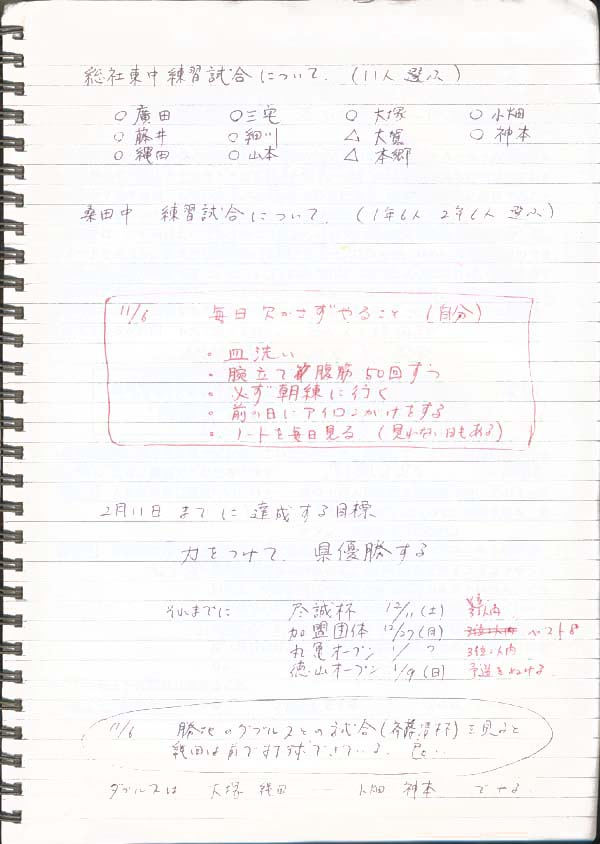 総社東中練習試合について. (11人 選ぶ)
○廣田 ○三宅 ○ 大塚 ○小畑
○藤井 ○細川 △ 大賀 ○神本
○縄田 ○山本 △ 本郷
桑田中 練習試合について. (1年6人 2年6人 選ぶ)
11/6 毎日欠かさずやること (自分)
・皿洗い
・腕立て 腹筋 50回ずつ
・必ず朝練に行く
・前の日にアイロンがけをする
・ノートを毎日見る (見れない日もある)
2月11日までに達成する目標
力をつけて. 県優勝する
それまでに 尽誠杯 12/11 (土) 以内
加盟団体 12/27(月) ベスト8
丸亀オープン 1/ ? 3位以内
徳山オープン 1/9 (日) 予選をぬける
11/6 のダブルスとの試合 を見ると
縄田は前で打球できている.
ダブルスは 大塚 縄田 ― 小畑 神本 でやる